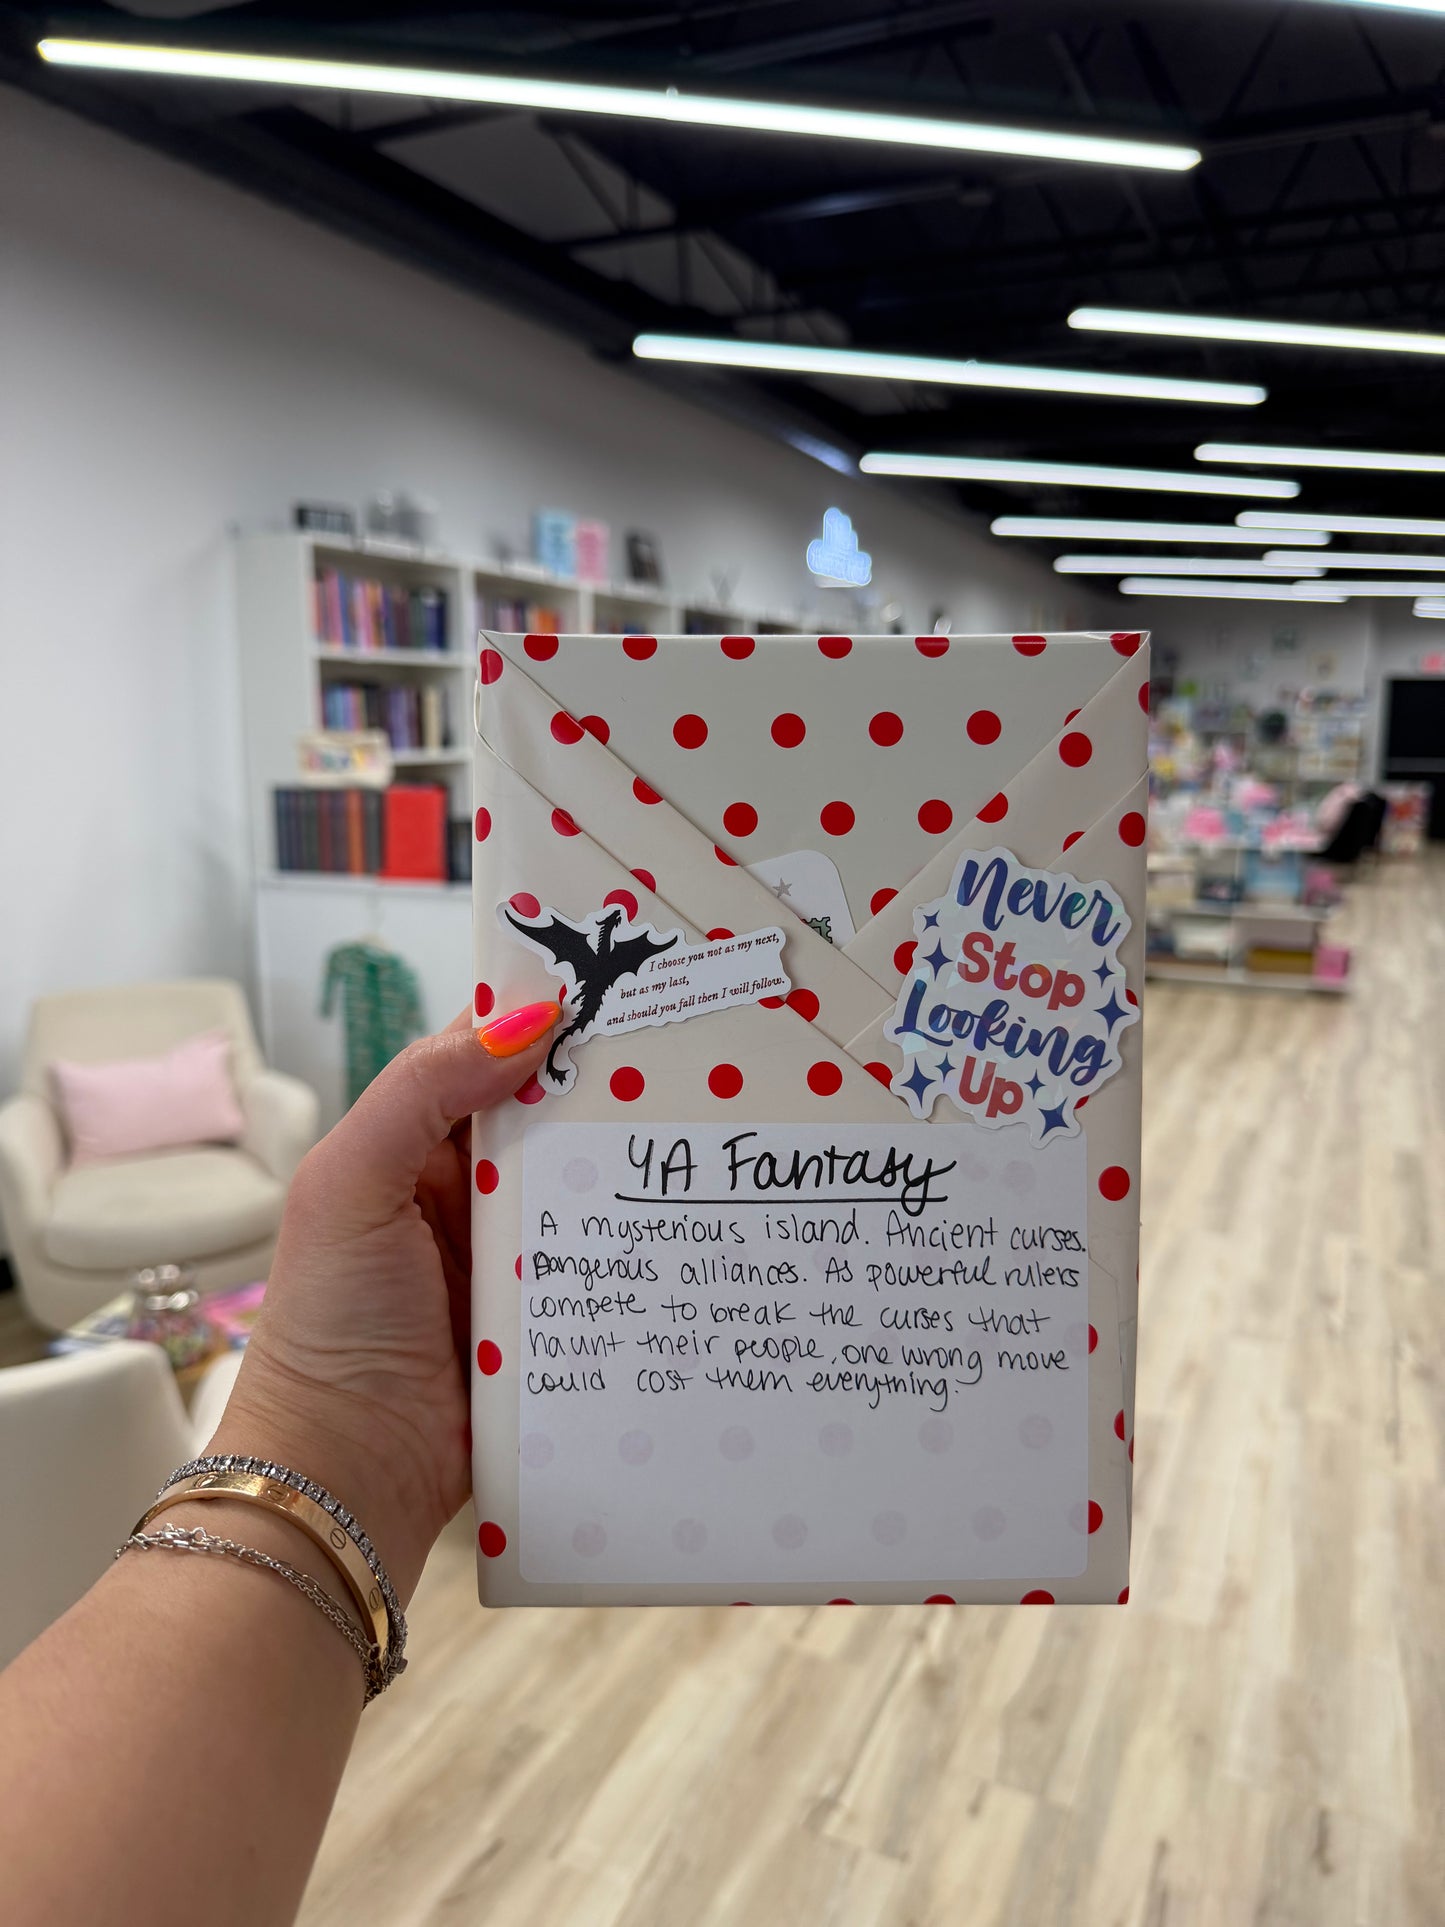 I choose you not as my next,
but as my last,
and should you fall then I will follow.
Never
Stop
Looking
Up
YA Fantasy
A mysterious island. Ancient curses.
Dangerous alliances. As powerful rulers
compete to break the curses that
haunt their people, one wrong move
could cost them everything.